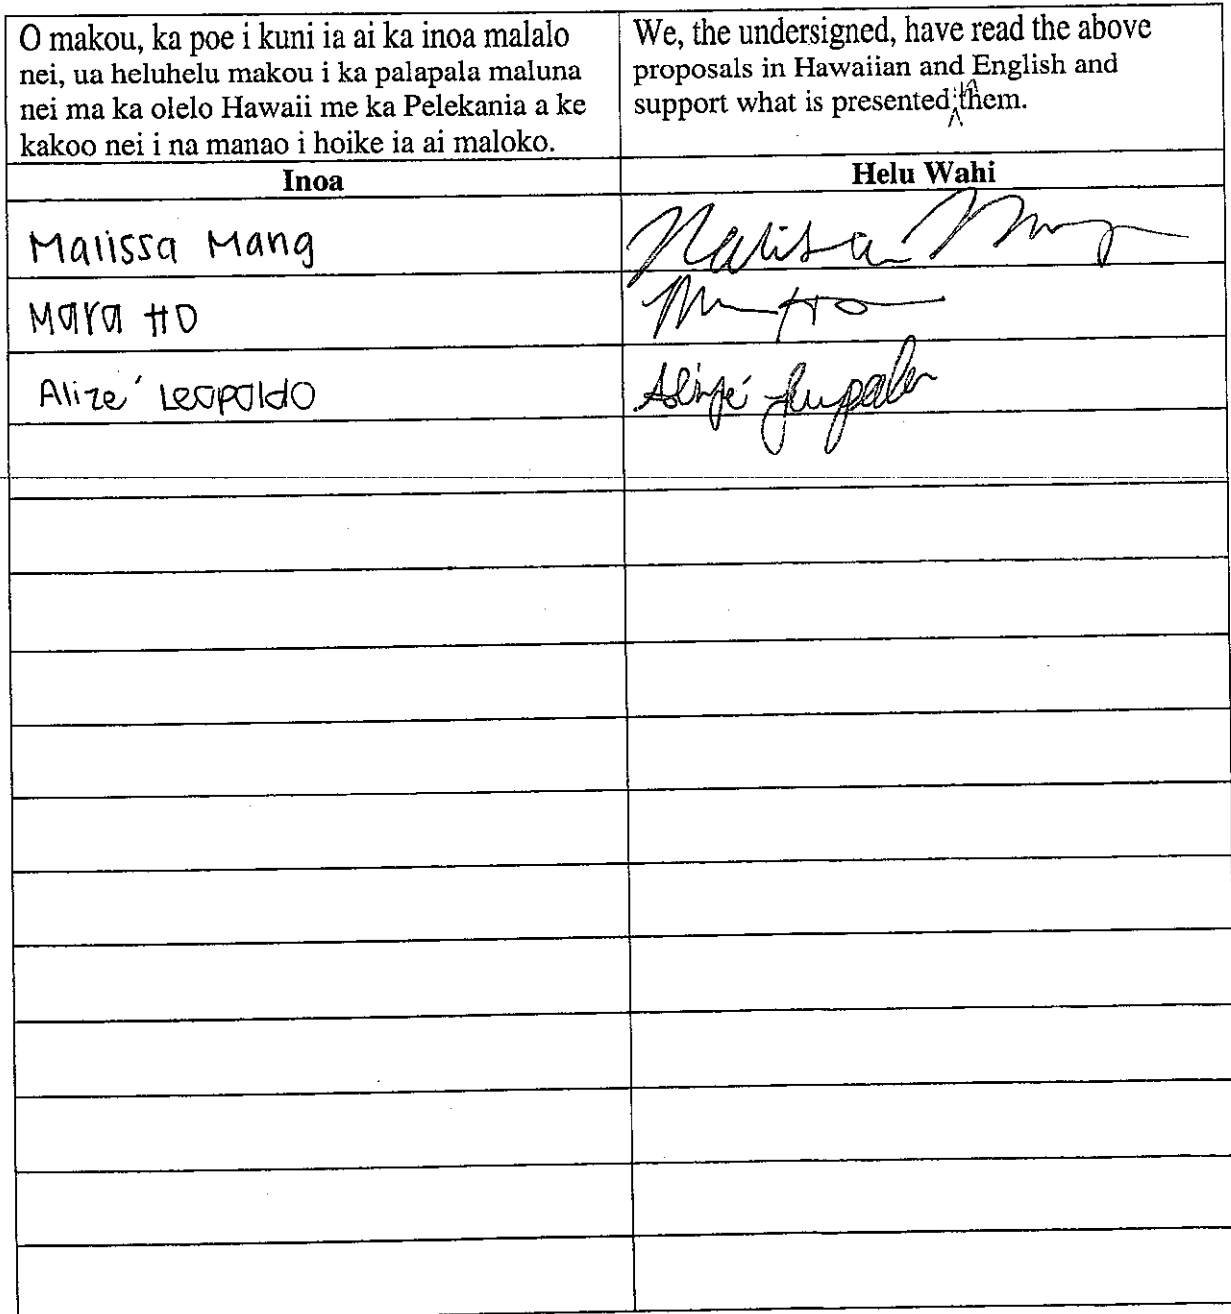 O makou, ka poe i kuni ia ai ka inoa malalo
nei, ua heluhelu makou i ka palapala maluna
nei ma ka olelo Hawaii me ka Pelekania a ke
kakoo nei i na manao i hoike ia ai maloko.
We, the undersigned, have read the above
proposals in Hawaiian and English and
support what is presented in them.
Inoa
Helu Wahi
Malissa Mang
Malissa Mang
Mara Ho
M Ho
Alizé Leopoldo
Alizé Leopoldo